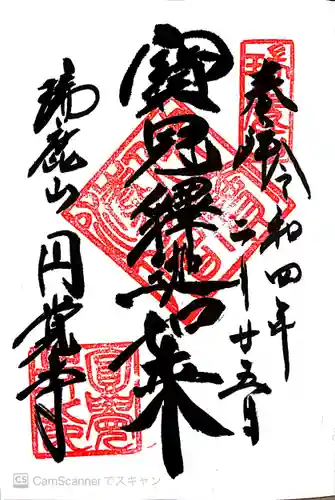 奉拝 令和四年二月廿五日
寳冠釋迦如来
瑞鹿山 円覚寺
CS CamScannerでスキャン